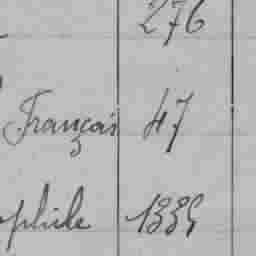 276
Français 47
ophile 1339